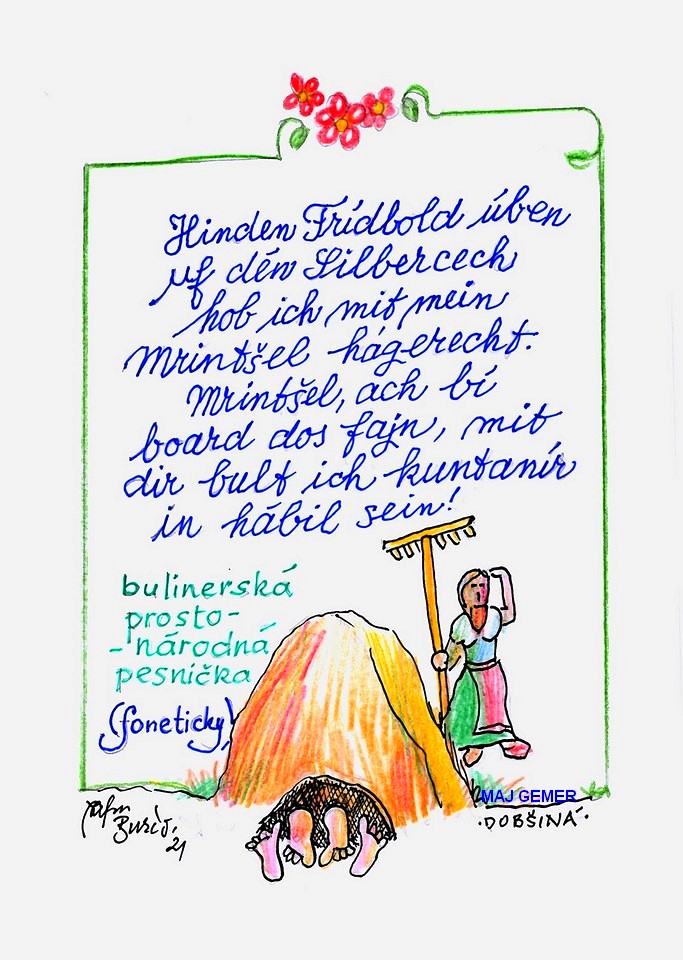 Hinden Frídbold úben
uf dén Silbercech
hob ich mit mein
Mrintšel hágerecht.
Mrintšel, ach bí
board dos fajn, mit
dir bult ich kuntanír
in hábil sein!
bulinerská
prosto-
-národná
pesnička
(foneticky)
21
MAJ GEMER
·DOBŠINÁ·